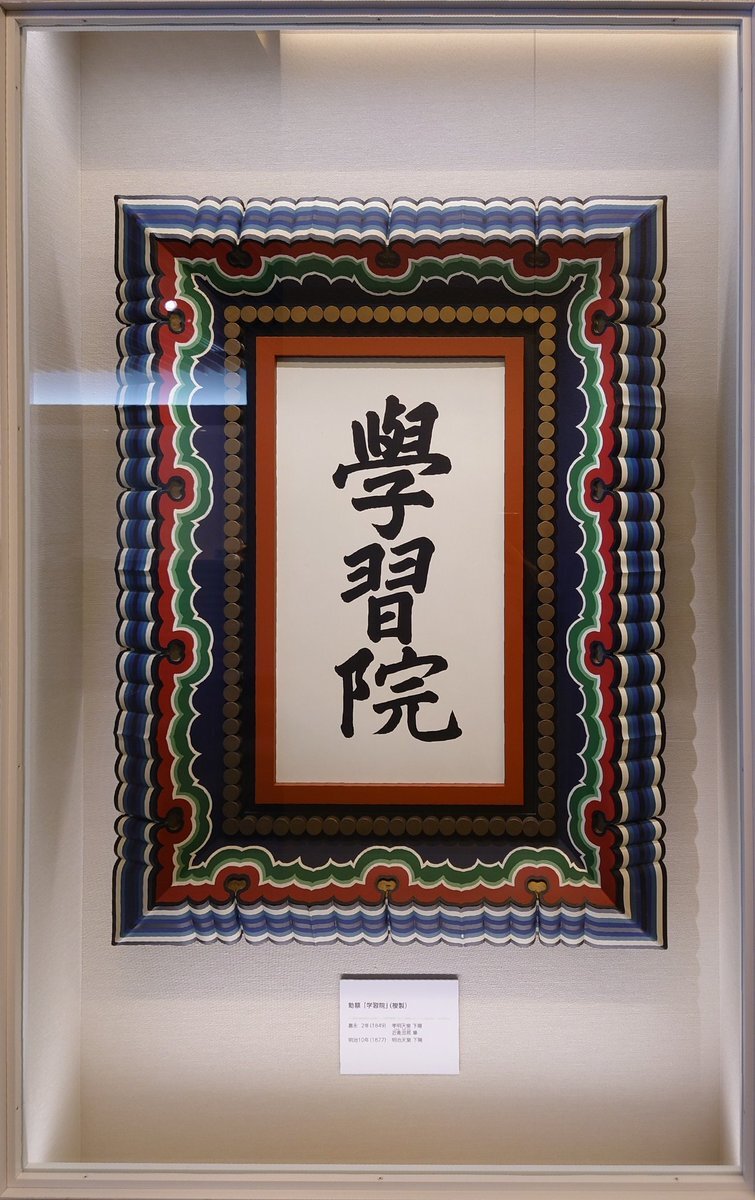 學習院
勅額「学習院」(複製)
嘉永 2年(1849) 孝明天皇 下賜
近衞忠煕 筆
明治10年(1877) 明治天皇 下賜